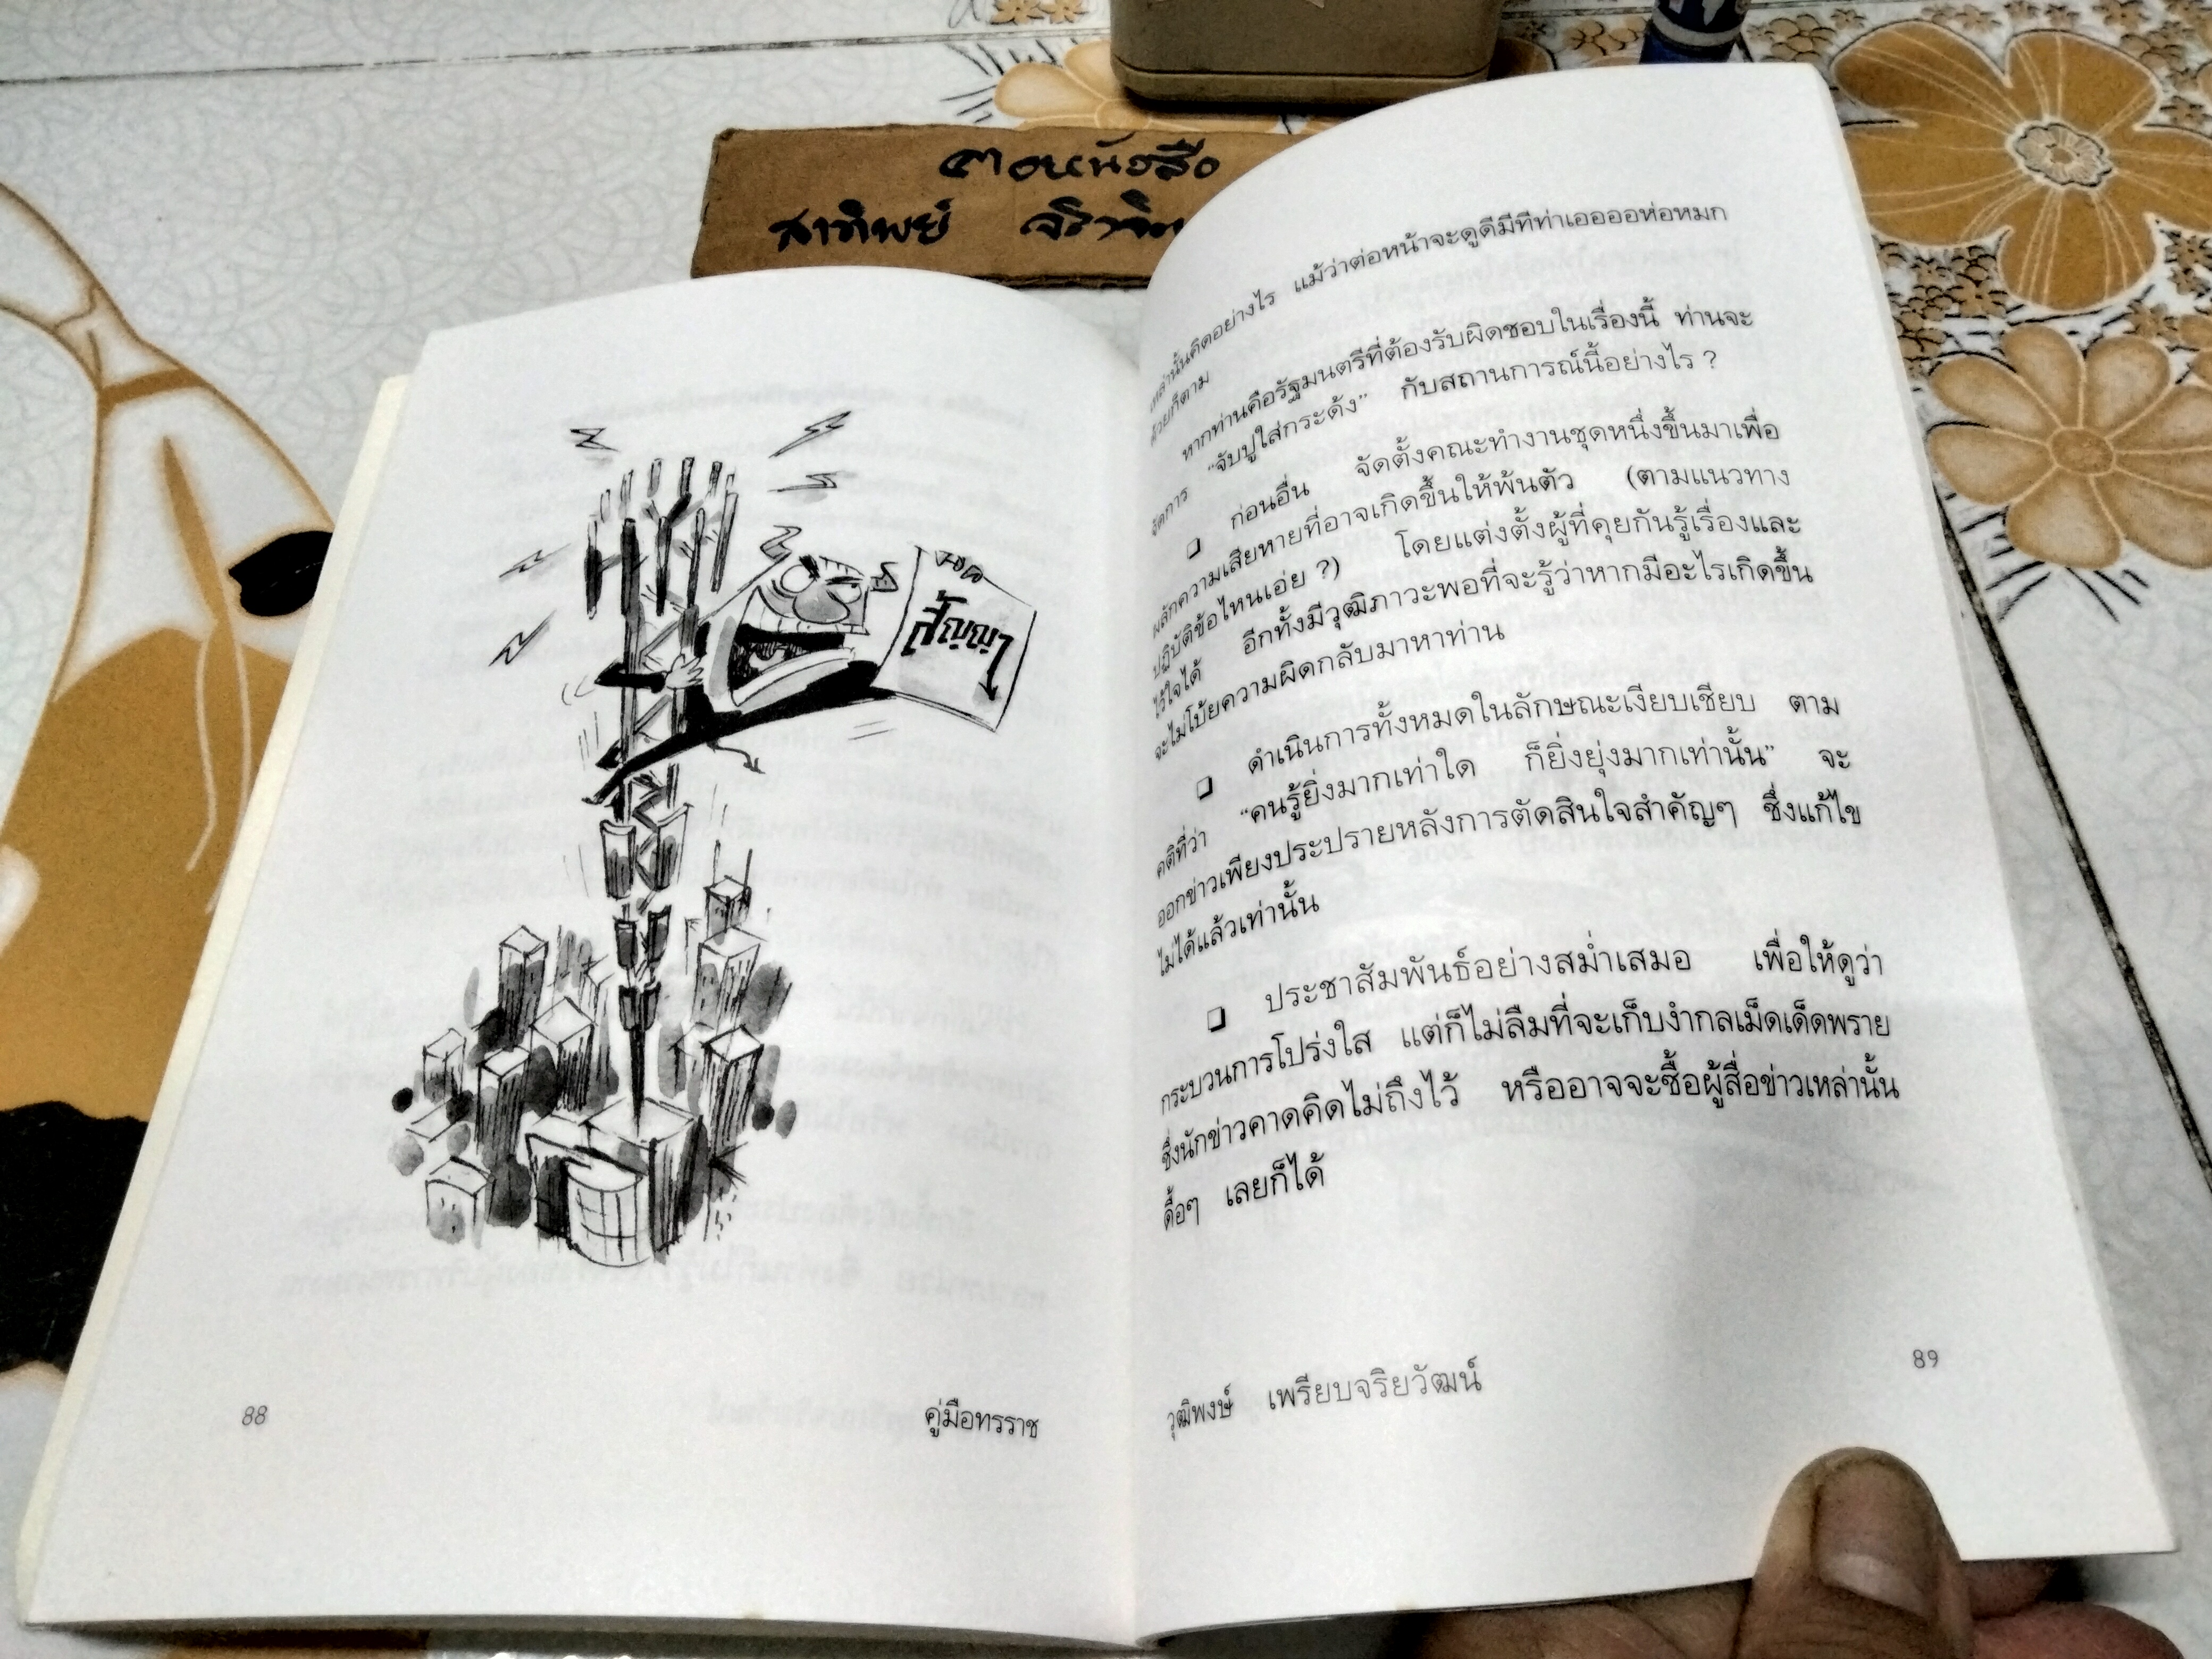 สาทิพย์
สัญญา
88
คู่มือทรราช
เหล่านั้นคิดอย่างไร แม้ว่าต่อหน้าจะดูดีมีทีท่าเออออห่อหมก
ด้วยก็ตาม
หากท่านคือรัฐมนตรีที่ต้องรับผิดชอบในเรื่องนี้ ท่านจะ
จัดการ "จับปูใส่กระด้ง" กับสถานการณ์นี้อย่างไร ?
❑ ก่อนอื่น จัดตั้งคณะทำงานชุดหนึ่งขึ้นมาเพื่อ
ผลักความเสียหายที่อาจเกิดขึ้นให้พ้นตัว (ตามแนวทาง
ปฏิบัติข้อไหนเอ่ย ?) โดยแต่งตั้งผู้ที่คุยกันรู้เรื่องและ
ไว้ใจได้ อีกทั้งมีวุฒิภาวะพอที่จะรู้ว่าหากมีอะไรเกิดขึ้น
จะไม่โบ้ยความผิดกลับมาหาท่าน
❑ ดำเนินการทั้งหมดในลักษณะเงียบเชียบ ตาม
คติที่ว่า "คนรู้ยิ่งมากเท่าใด ก็ยิ่งยุ่งมากเท่านั้น" จะ
ออกข่าวเพียงประปรายหลังการตัดสินใจสำคัญๆ ซึ่งแก้ไข
ไม่ได้แล้วเท่านั้น
❑ ประชาสัมพันธ์อย่างสม่ำเสมอ เพื่อให้ดูว่า
กระบวนการโปร่งใส แต่ก็ไม่ลืมที่จะเก็บงำกลเม็ดเด็ดพราย
ซึ่งนักข่าวคาดคิดไม่ถึงไว้ หรืออาจจะซื้อผู้สื่อข่าวเหล่านั้น
ดื้อๆ เลยก็ได้
วุฒิพงษ์ เพรียบจริยวัฒน์
89